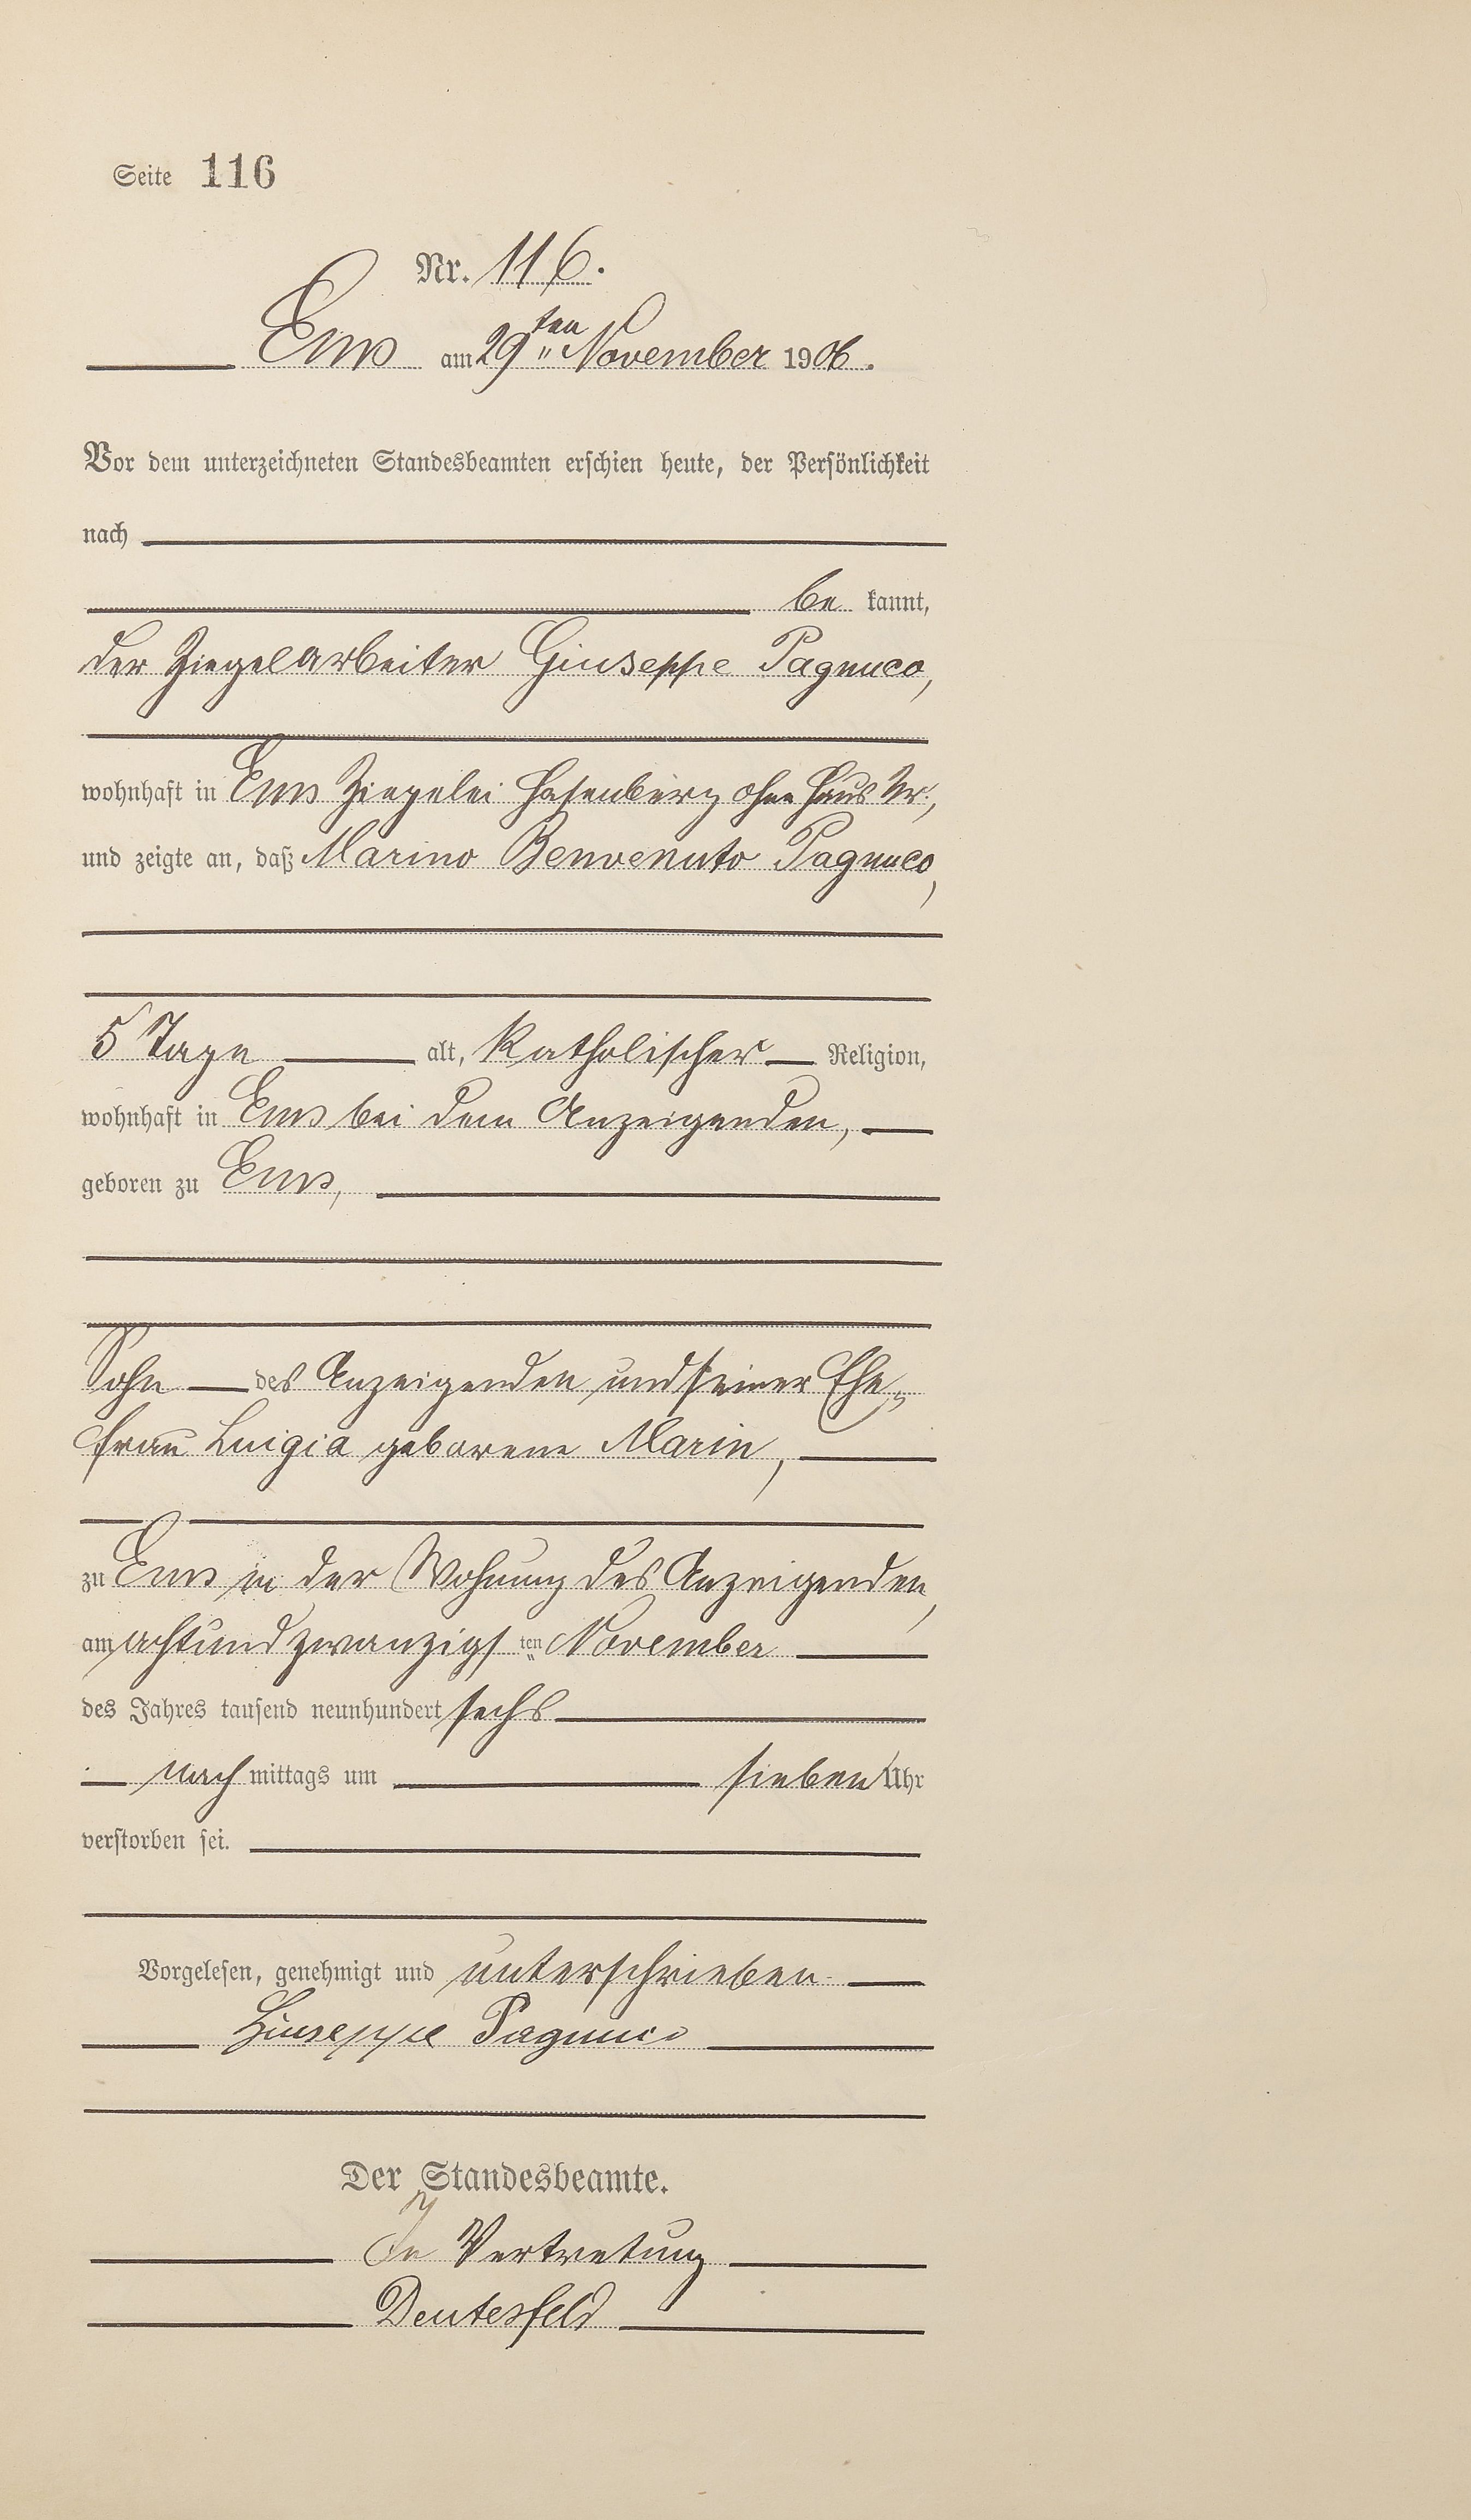 Seite 116
Nr. 116.
Ems am 29ten November 1906.
Vor dem unterzeichneten Standesbeamten erschien heute, der Persönlichkeit
nach
be kannt,
der Ziegelarbeiter Giuseppe Pagnuco,
wohnhaft in Ems Ziegelei Hasenberg ohne Haus Nr.,
und zeigte an, daß Marino Benvenuto Pagnuco,
5 Tage alt, katholischer Religion,
wohnhaft in Ems bei dem Anzeigenden,
geboren zu Ems,
Sohn des Anzeigenden und seiner Ehe„
frau Luigia geborene Marin,
zu Ems in der Wohnung des Anzeigenden,
am achtundzwanzigsten November
des Jahres tausend neunhundert sechs
nach mittags um sieben Uhr
verstorben sei.
Vorgelesen, genehmigt und unterschrieben
Giuseppe Pagnuco
Der Standesbeamte.
In Vertretung
Deutesfeld